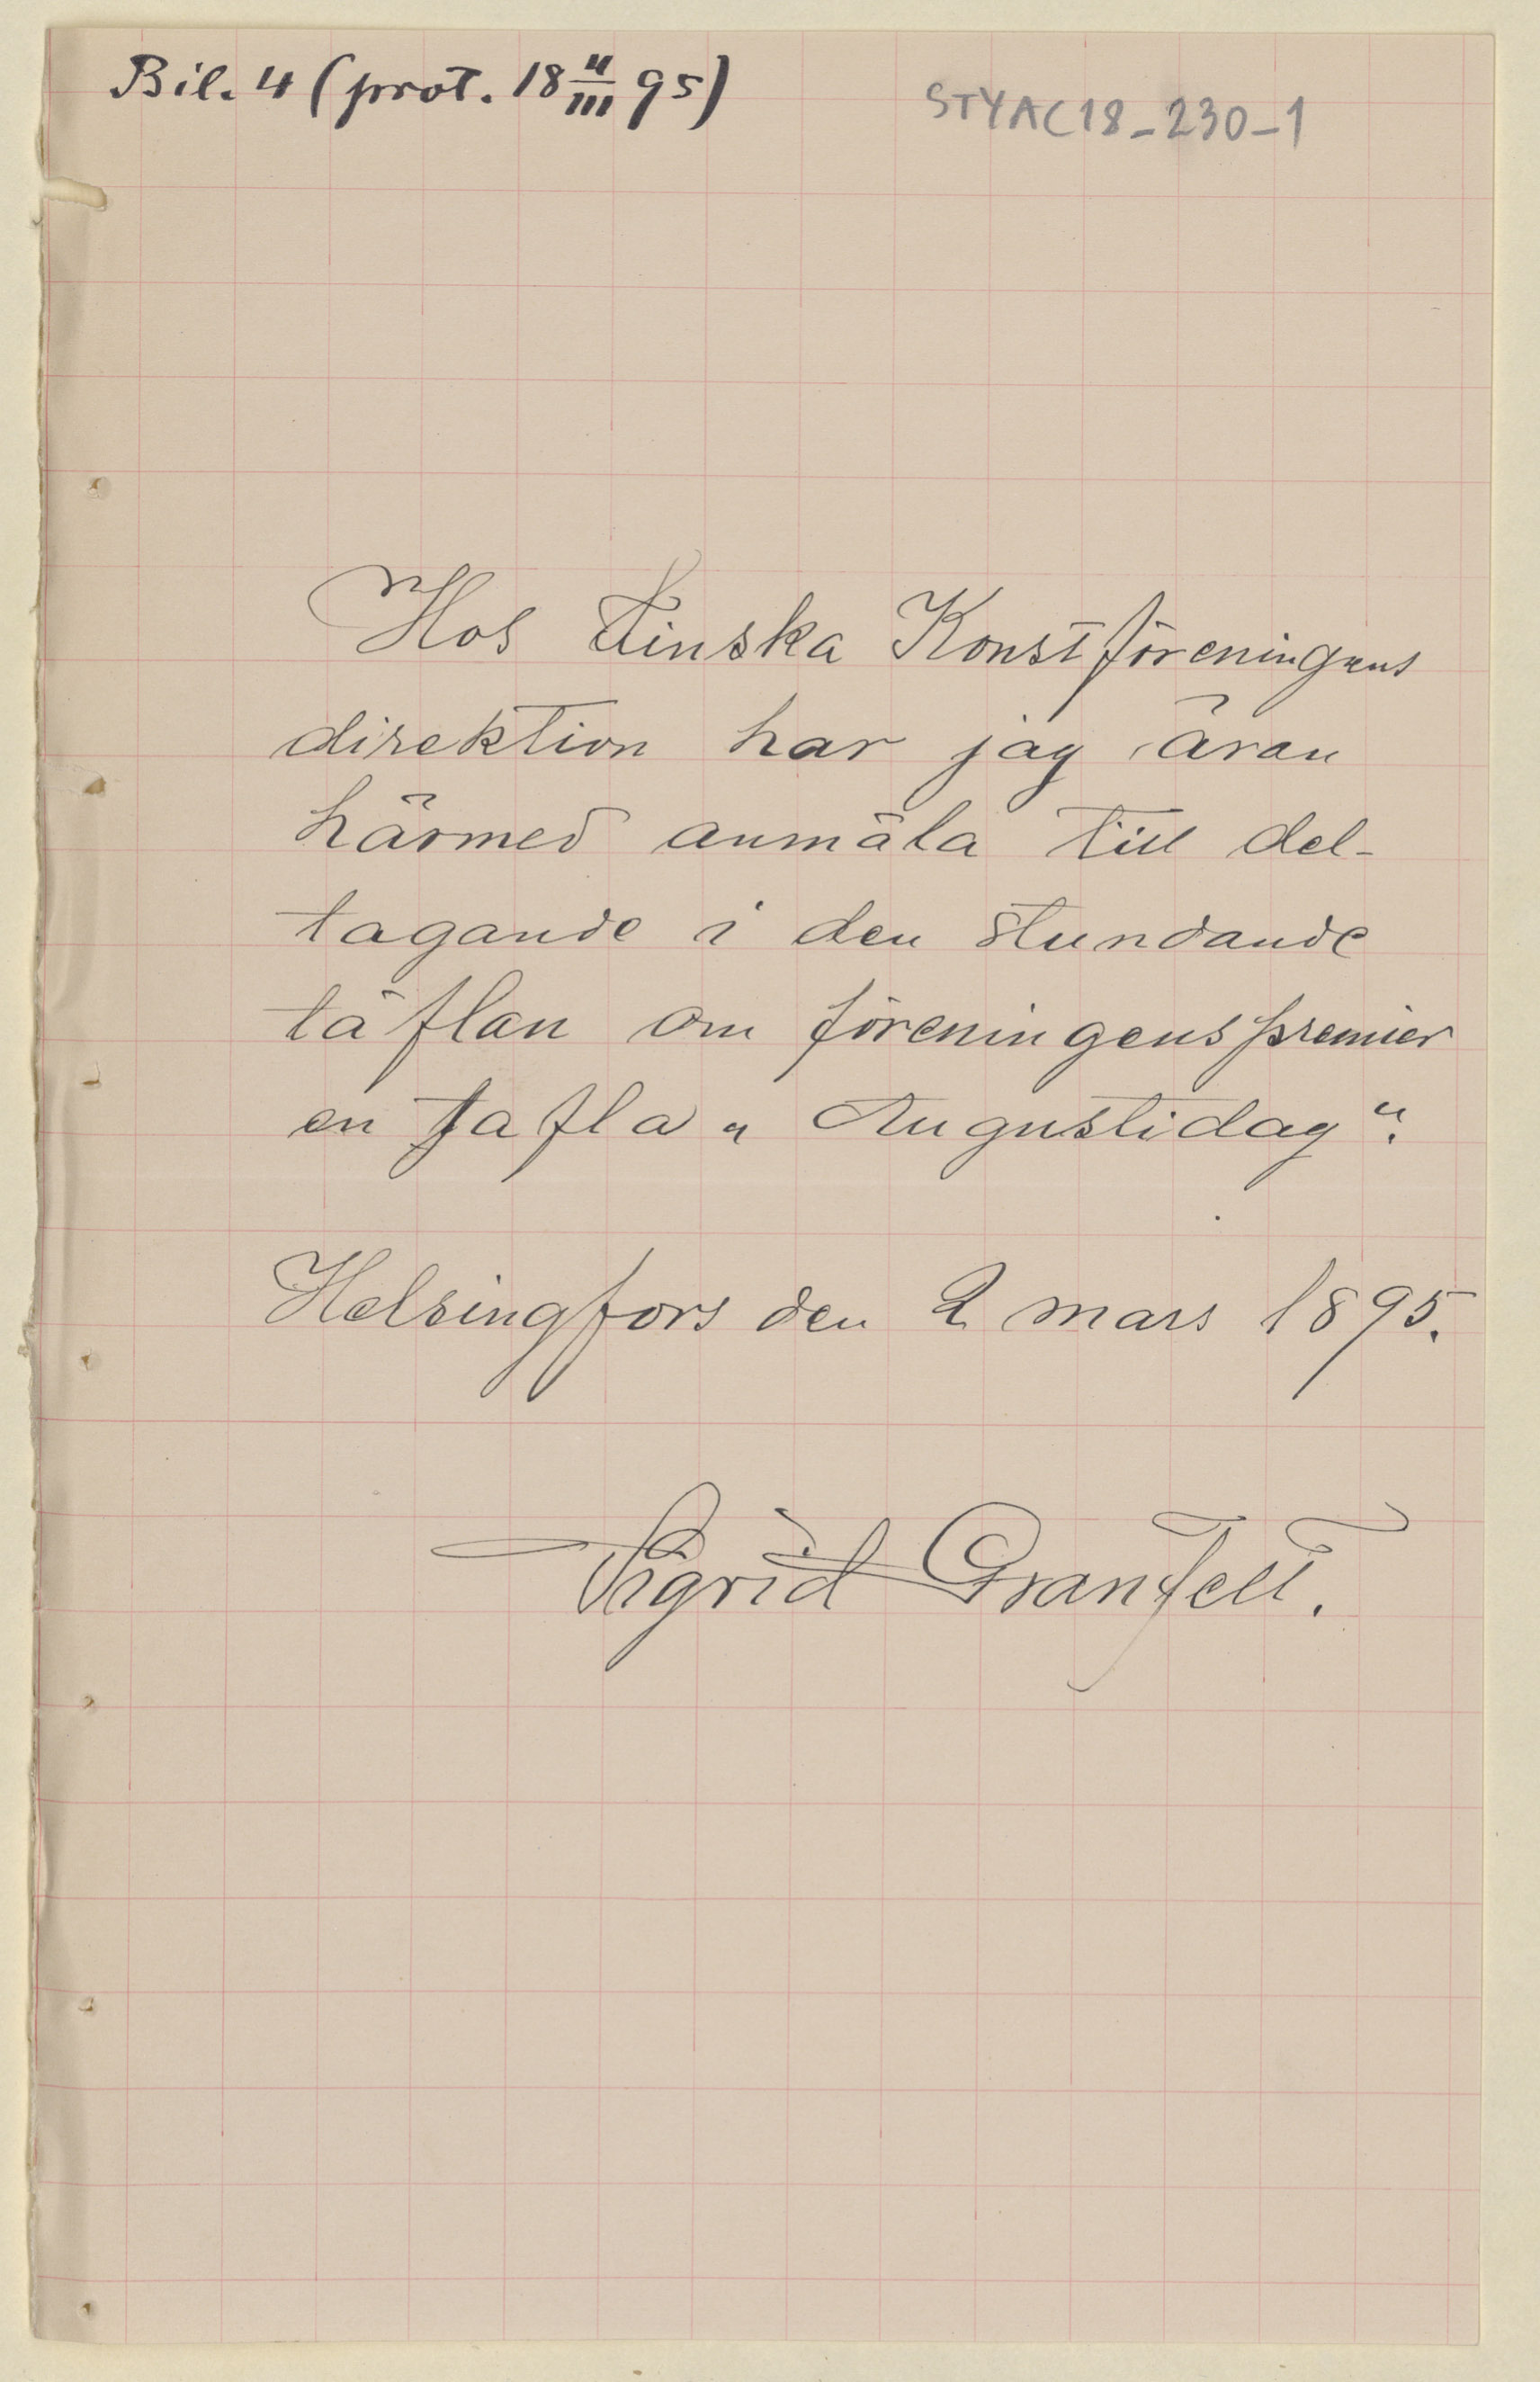 Bil. 4 (prot. 18 4/III 95)
STYAC18-230-1
Hos Finska Konstföreningens
direktion har jag äran
härmed anmäla till del-
tagande i den stundande
täflan om föreningens premier
en tafla „Augustidag“.
Helsingfors den 2 mars 1895.
Sigrid Granfelt.